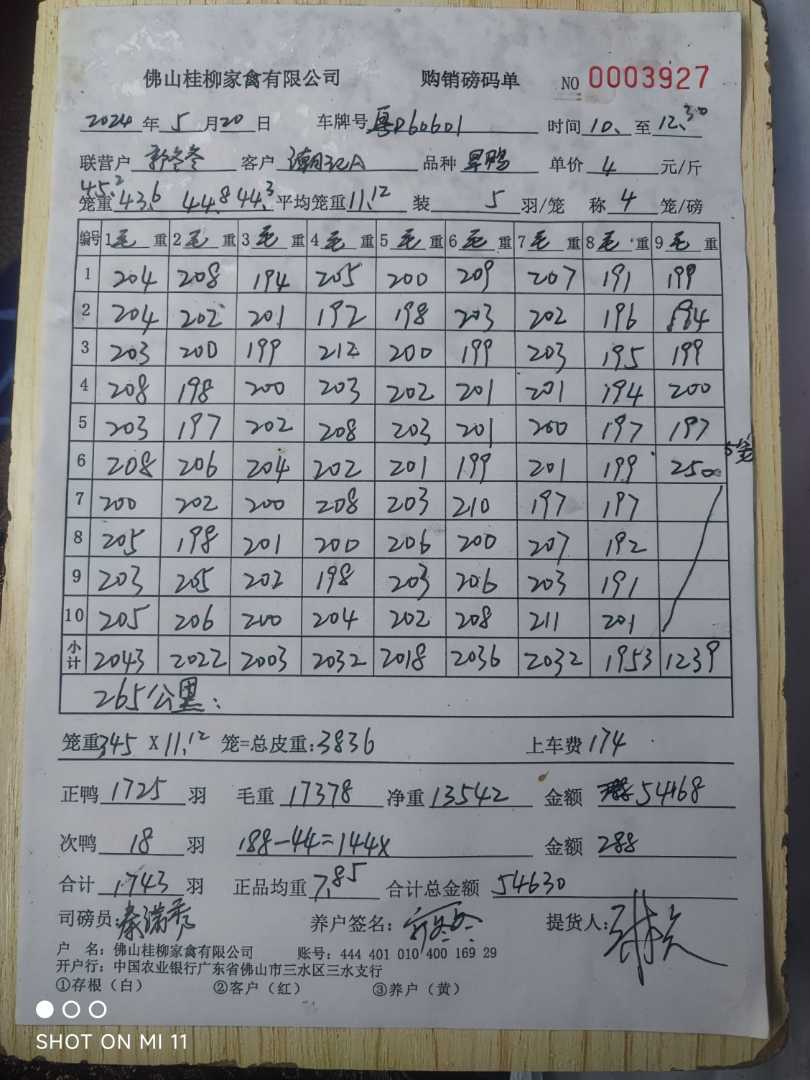 佛山桂柳家禽有限公司 购销磅码单 NO 0003927
2024年5月20日 车牌号粤R60601 时间10.至12.30
联营户 客户潮汉A 品种旱鸭 单价4元/斤
45.2
笼重43.6 44.8 44.3平均笼重11.12装5羽/笼 称4笼/磅
编号 1毛重 2毛重 3毛重 4毛重 5毛重 6毛重 7毛重 8毛重 9毛重
1 204 208 194 205 200 209 207 191 199
2 204 202 201 192 198 203 202 196 194
3 203 200 199 212 200 199 203 195 199
4 208 198 200 203 202 201 201 194 200
5 203 197 202 208 203 201 200 197 197
6 208 206 204 202 201 199 201 199 250 5笼
7 200 202 200 208 203 210 197 197
8 205 198 201 200 206 200 207 192
9 203 205 202 198 203 206 203 191
10 205 206 200 204 202 208 211 201
小计 2043 2022 2003 2032 2018 2036 2032 1953 1239
265公里:
笼重345X11.12笼=总皮重:3836 上车费174
正鸭1725羽 毛重17378净重13542 金额54168
次鸭18羽 188-44=144x 金额288
合计1743羽 正品均重7.85 合计总金额54630
司磅员: 养户签名: 提货人:
户 名: 佛山桂柳家禽有限公司 账号: 444 401 010 400 169 29
开户行: 中国农业银行广东省佛山市三水区三水支行
①存根(白) ②客户(红) ③养户(黄)
SHOT ON MI 11